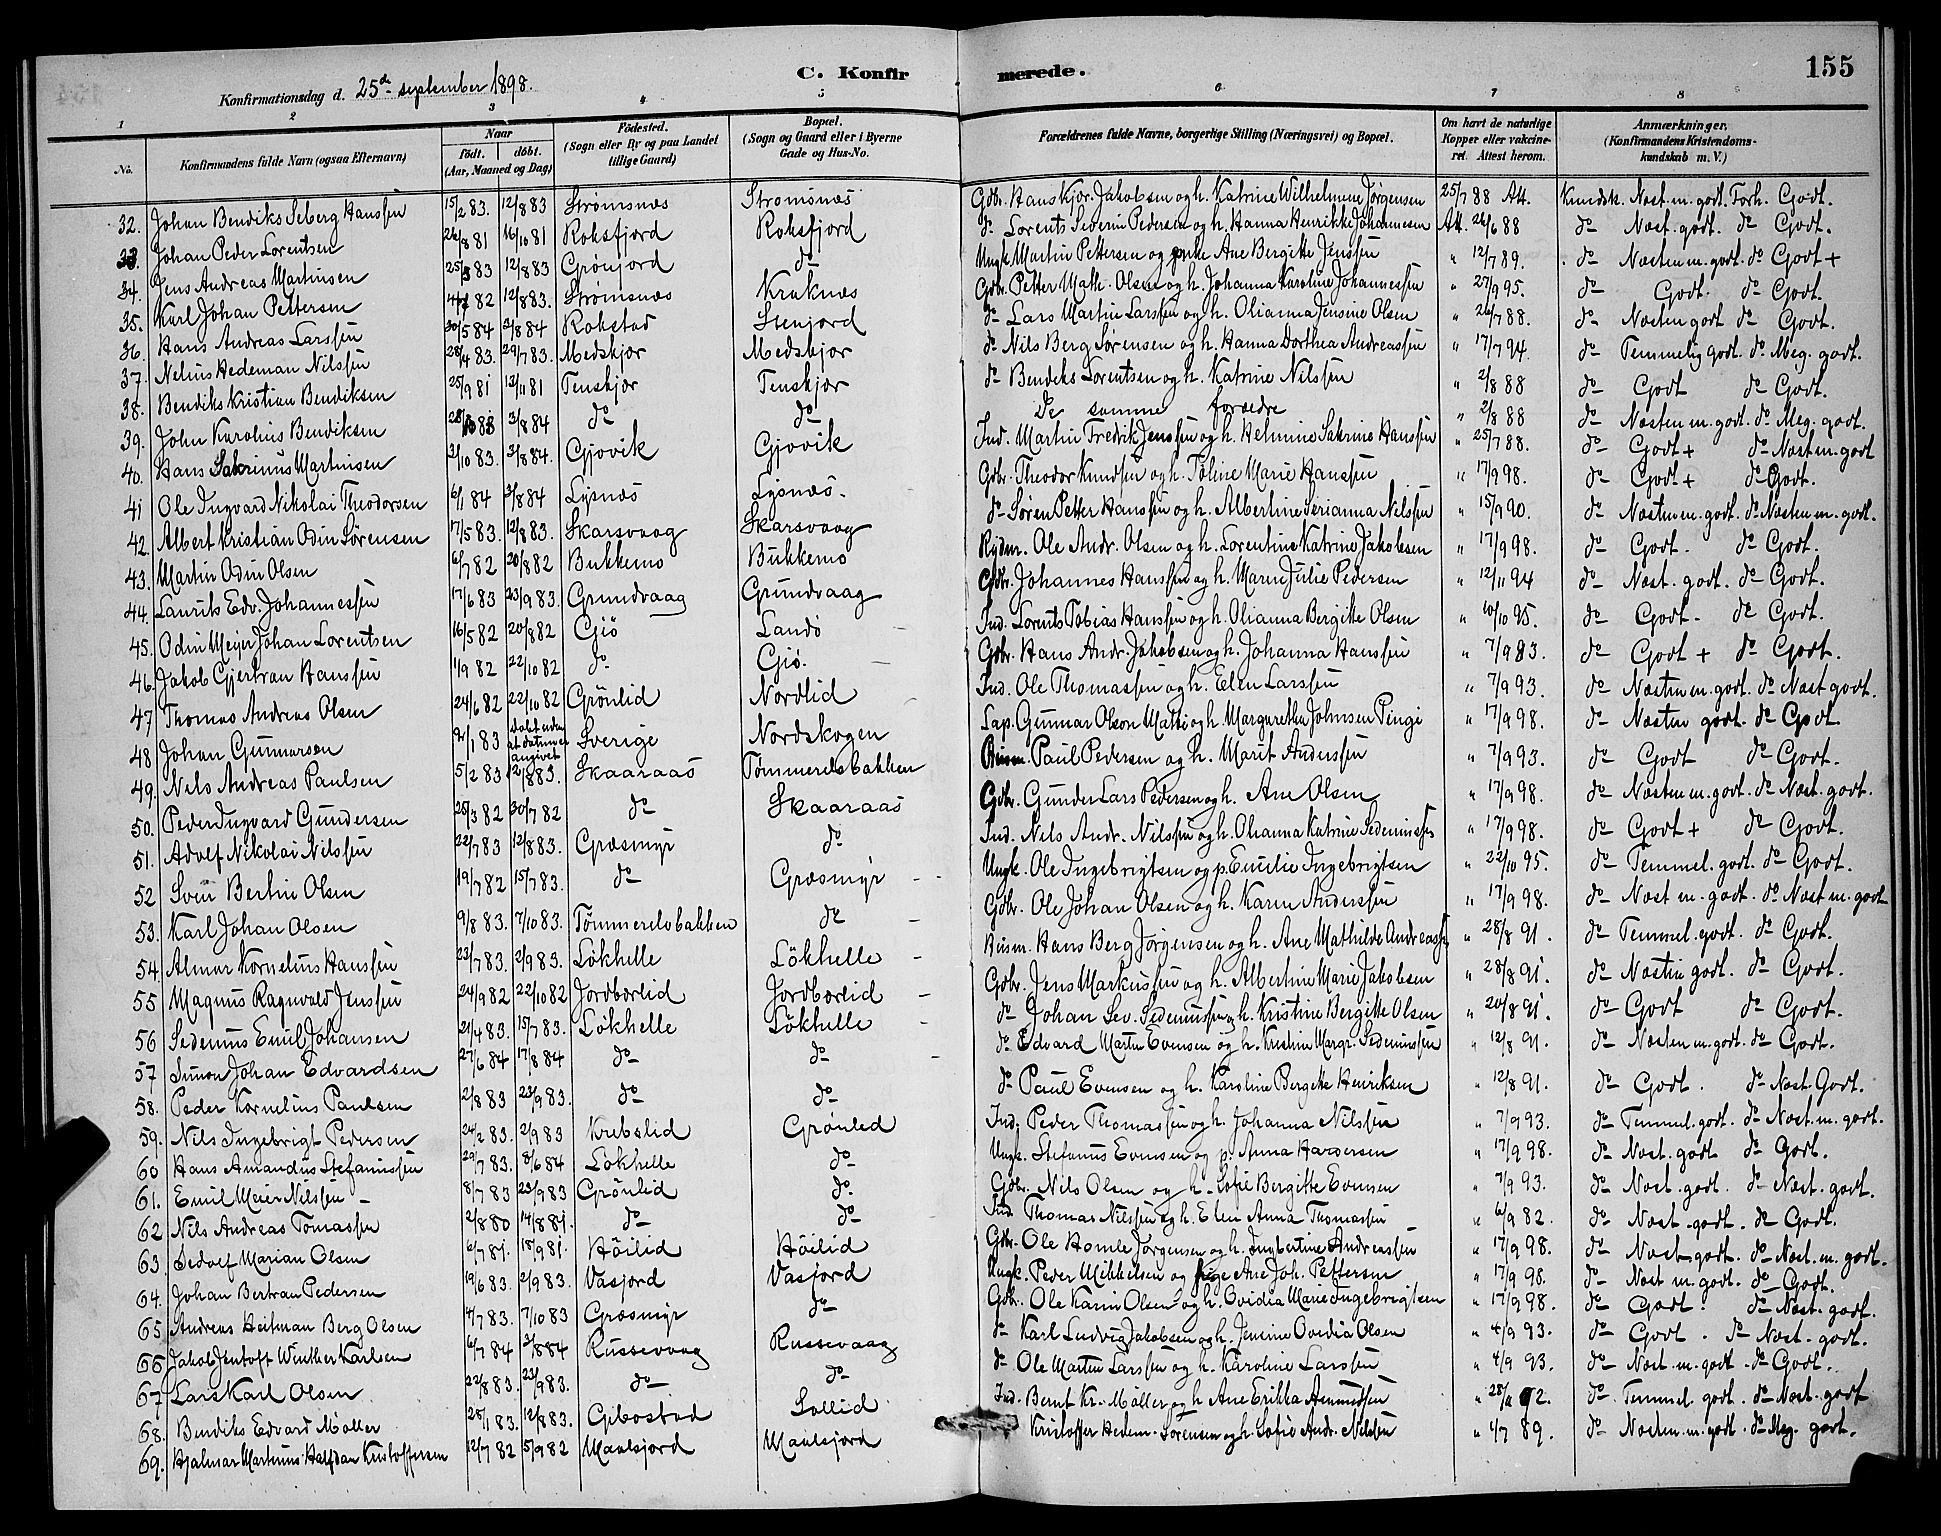 155
C. Konfirmerede.
Konfirmationsdag d. 25de september 1898.
1 2 3 4 5 6 7 8
No. Konfirmandens fulde Navn (ogsaa Efternavn) Naar født. døbt. (Aar, Maaned og Dag) Fødested. (Sogn eller By og paa Landet tillige Gaard) Bopæl. (Sogn og Gaard eller i Byerne Gade og Hus-No. Forældrenes fulde Navne, borgerlige Stilling (Næringsvei) og Bopæl. Om havt de naturlige Kopper eller vakcineret. Attest herom. Anmærkninger, (Konfirmandens Kristendomskundskab m. V.)
32. Johan Bendiks Seberg Hanssen 15/2 83. 12/8 83 Strømsnes Strømsnes Gdbr. Hans Kjer. Jakobsen og h. Katrine Wilhelmine Jørgensen 25/7 88 Att. Kundsk. Næst. m. godt. Forh. Godt.
33. Johan Peder Lorentsen 26/8 81 16/10 81 Roksfjord Roksfjord do Lorents Sederin Pedersen og h. Hanna Henrikke Johannesen Att. 26/6 88 do Næst. godt. do Godt.
34. Jens Andreas Martinsen 25/8 83 12/8 83 Grønjord do Ungk. Martin Pettersen og Ane Bergitte Jenssen " 12/7 89. do Næsten m. godt. do Godt +
35. Karl Johan Pettersen 4/7 82 12/8 83. Strømsnes Kraknes Gdbr. Petter Math. Olsen og h. Johanna Karoline Johannessen " 27/9 95. do Godt. do Godt.
36. Hans Andreas Larssen 30/5 84 3/8 84 Rokstad Stenjord do Lars Martin Larssen og h. Olianna Jensine Olsen " 26/7 88. do Næsten godt do Godt.
37. Nelius Hedeman Nilssen 28/4 83. 29/7 83. Medskjær Medskjær do Nils Berg Sørensen og h. Hanna Dorthea Andreassen " 17/7 94. do Temmelig godt. do Meg. godt.
38. Bendiks Kristian Bendiksen 25/9 81 13/11 81 Tenskjær Tenskjær do Bendiks Lorentsen og h. Katrine Nilssen " 2/8 88 do Godt do Godt.
39. John Karolius Bendiksen 28/10 83 3/8 84 do do De samme foræddre " 2/8 88 do Næsten m. godt. do Meg. godt.
40. Hans Sakrinus Martinsen 31/10 83. 3/8 84. Gjøvik Gjøvik Ind. Martin Fredrik Jenssen og h. Helmine Sakrine Hanssen " 25/7 88. do Godt + do Næst m. godt
41 Ole Ingvard Nikolai Theodorsen 6/1 84 3/8 84 Lysnes Lysnes. Gdbr. Theodor Knudsen og h. Tøline Marie Hanssen " 17/9 98. do Godt + do Godt.
42. Albert Kristian Odin Sørensen 17/5 83. 12/8 83. Skarsvaag Skarsvaag do Søren Petter Hanssen og h. Albertine Serianna Nilssen " 15/9 90. do Næsten m. godt. do Næsten m. godt.
43. Martin Odin Olsen 6/7 82 20/8 82 Bukkemo Bukkemo Rydm. Ole Andr. Olsen og h. Lorentine Katrine Jakobsen " 17/9 98. do Godt. do Godt.
44. Laurits Edv. Johannessen 17/6 83 23/9 83. Grundvaag Grundvaag Gdbr. Johannes Hanssen og h. Maren Julie Pedersen " 12/11 94 do Næst. godt. do Godt.
45. Odin Meyer Johan Lorentsen 16/5 82 20/8 82 Gjø Landø Ind. Lorents Tobias Hanssen og h. Olianna Bergitte Olsen " 10/10 95. do Godt. do Godt.
46. Jakob Gjertran Hanssen 1/9 82 22/10 82 do Gjø. Gdbr. Hans Andr. Jakobsen og h. Johanna Hanssen " 7/9 83. do Godt + do Godt.
47 Thomas Andreas Olsen 24/6 82 22/10 82 Grønlid Nordlid Ind. Ole Thomassen og h. Elen Larssen " 7/9 93. do Næsten m. godt. do Næst godt.
48 Johan Gunnarson 2/1 83 døbt uden at datum er angivet Sverige Nordskogen Lap. Gunnar Olson Matti og h. Margaretha Johnsen Pingi " 17/9 98. do Næsten godt. do Godt
49. Nils Andreas Paulsen 5/2 83 12/8 83. Skaaraas Tømmerelvbakken Beism. Paul Pedersen og h. Marit Anderssen " 7/9 93. do Godt do Godt.
50. Peder Ingvard Gundersen 25/3 82 30/7 82 do Skaaraas Gdbr. Gunder Lars Pedersen og h. Ane Olsen " 17/9 98. do Næsten m. godt. do Næst. godt.
51. Adolf Nikolai Nilssen 22/7 83 12/8 83. Græsmyr do Ind. Nils Andr. Nilssen og h. Ohanna Katrine " 17/9 98. do Godt + do Godt.
52 Svein Bertin Olsen 19/7 82 15/7 83. do Græsmyr Ungk. Ole Ingebrigtsen og p. Emilie Ingebrigtsen " 22/10 95. do Temmel. godt. do Godt.
53. Karl Johan Olsen 9/8 83. 7/10 83. Tømmerelvbakken do Gdbr. Ole Johan Olsen og h. Karen Anderssen " 17/9 98. do Næst m. godt. do Næst m. godt
54. Almar Kornelius Hanssen 23/7 83. 2/9 83. Løkhelle Løkhelle Beism. Hans Berg Jørgensen og h. Ane Mathilde Andreass. " 28/8 91. do Temmel. godt. do Godt.
55 Magnus Ragnvald Jenssen 24/9 82 22/10 82 Jordbærlid Jordbærlid Gdbr. Jens Markussen og h. Albertine Marie Jakobsen " 28/8 91. do Næsten godt. do Godt.
56 Sedenius Emil Johansen 21/4 83. 15/7 83. Løkhelle Løkhelle do Johan Sev. Sedeniussen og h. Kristine Bergitte Olsen " 20/8 91. do Godt do Godt.
57 Simon Johan Edvardsen 27/6 84 17/8 84 do do do Edvard Martin Evensen og h. Kristine Margr. Sedeniussen " 12/8 91. do Næsten m. godt. do Godt.
58. Peder Kornelius Paulsen 2/8 83 23/9 83. do do do Paul Evensen og h. Karoline Bergitte Henriksen " 12/8 91. do Godt. do Næst. Godt.
59. Nils Ingebrigt Pedersen 24/2 83. 2/9 83 Krebslid Grønlid Ind. Peder Thomassen og h. Johanna Nilssen " 7/9 93. do Temmel. godt. do Næst. m. godt.
60 Hans Amandus Stefanussen 29/7 83. 8/6 84 Løkhelle do Ungk. Stefanus Evensen og p. Anna " 17/9 98. do Næst. godt do Godt.
61. Emil Meier Nilssen 8/7 83 23/9 83 Grønlid do. Gdbr. Nils Olsen og h. Sofie Bergitte Evensen " 7/9 93. do Næst. godt. do Næst. godt.
62 Nils Andreas Tomassen 2/8 80 14/8 81. do do Ind. Thomas Nilssen og h. Elen Anna Thomassen " 6/9 82. do Næst. godt. do Godt.
63. Sedolf Marian Olsen 6/7 81. 18/9 81. Høilid Høilid Gdbr. Ole Hemle Jørgensen og h. Ingbertine Andreassen " 17/9 98. do Næst godt. do Næst. m. godt.
64. Johan Bertran Pedersen 19/6 83. 2/9 83. Vasjord Vasjord Ungk. Peder Mikkelsen og pige Ane Joh. Pettersen " 17/9 98. do Næst m. godt. do Godt.
65 Andreas Heitman Berg Olsen 4/7 83. 7/10 83 Græsmyr do Gdbr. Ole Karin Olsen og h. Ovidia Marie Ingebrigtsen " 17/9 98. do Godt. do Næst. godt.
66 Jakob Jentoft Winther Karlsen 6/7 84 3/8 84 Russevaag Russevaag do Karl Ludvig Jakobsen og h. Jenine Ovidia Olsen " 4/9 93. do Godt. do Næst. godt.
67 Lars Karl Olsen 22/8 83. 23/9 83. do do do Ole Martin Larssen og h. Karoline Larssen " 4/9 93. do Næst. m. godt. do Godt.
68. Bendiks Edvard Møller 28/1 83. 12/8 83. Gibostad Sollid Ind. Bernt Kr. Møller og h. Ane Erikka " 28/11 92. do Temmel. godt. do Næst. godt
69. Hjalmar Martinus Halfdan Kristoffersen 12/7 82 5/9 82 Maalsjord Maalsjord Kristoffer Hedem. Sørensen og h. Sofie Andr. Nilssen " 4/7 89. do Næsten m. godt. do Meg. godt.